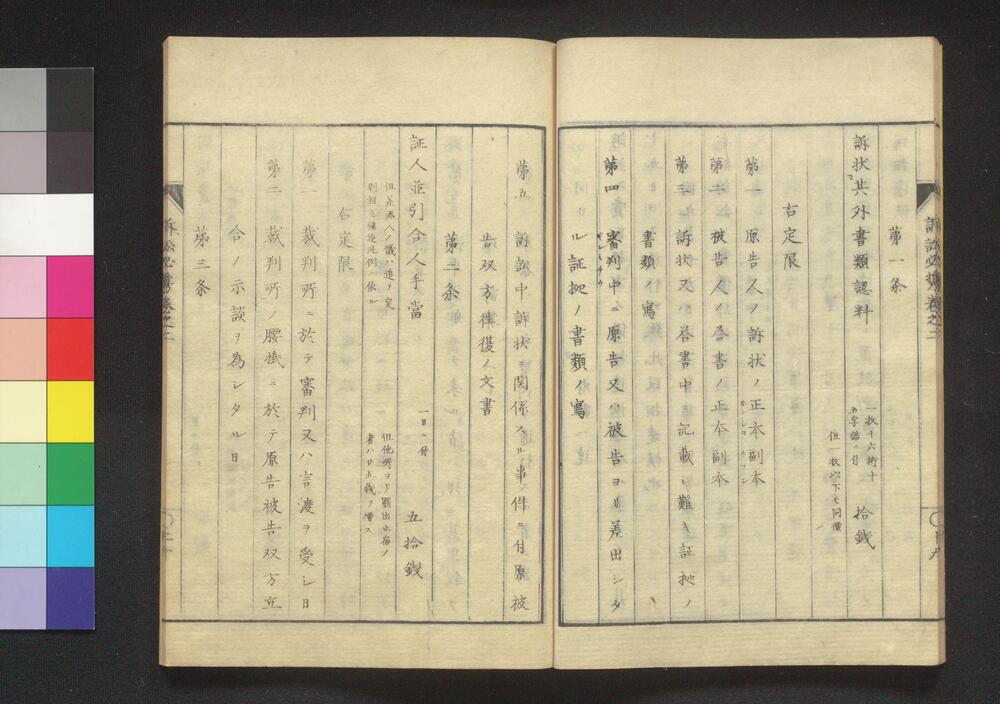 訴訟必携巻之二
〇十九
第一条
訴状其外書類認料
一枚十六行十
五字詰ニ付
拾銭
但一枚以下モ同價
右定限
第一 原告人ノ訴状ノ正本副本
第二 被告人ノ答書ノ正本副本
第三 訴状又ハ答書中ニ記載シ難キ証拠ノ
書類ノ寫
第四 審判中ニ原告又ハ被告ヨリ差出シタ
ル証拠ノ書類ノ寫
第五 訴訟中訴状ニ関係スル事件ニ付原被
告双方往復ノ文書
第二条
証人並引合人手當
一日ニ付
五拾錢
但他所ヨリ罷出止宿ノ
者ハ廿五錢ヲ増ス
右定限
第一 裁判所ニ於テ審判又ハ言渡ヲ受シ日
第二 裁判所ノ腰掛ニ於テ原告被告双方立
合ノ示談ヲ為シタル日
第三条
訴訟必携巻之二
〇二十